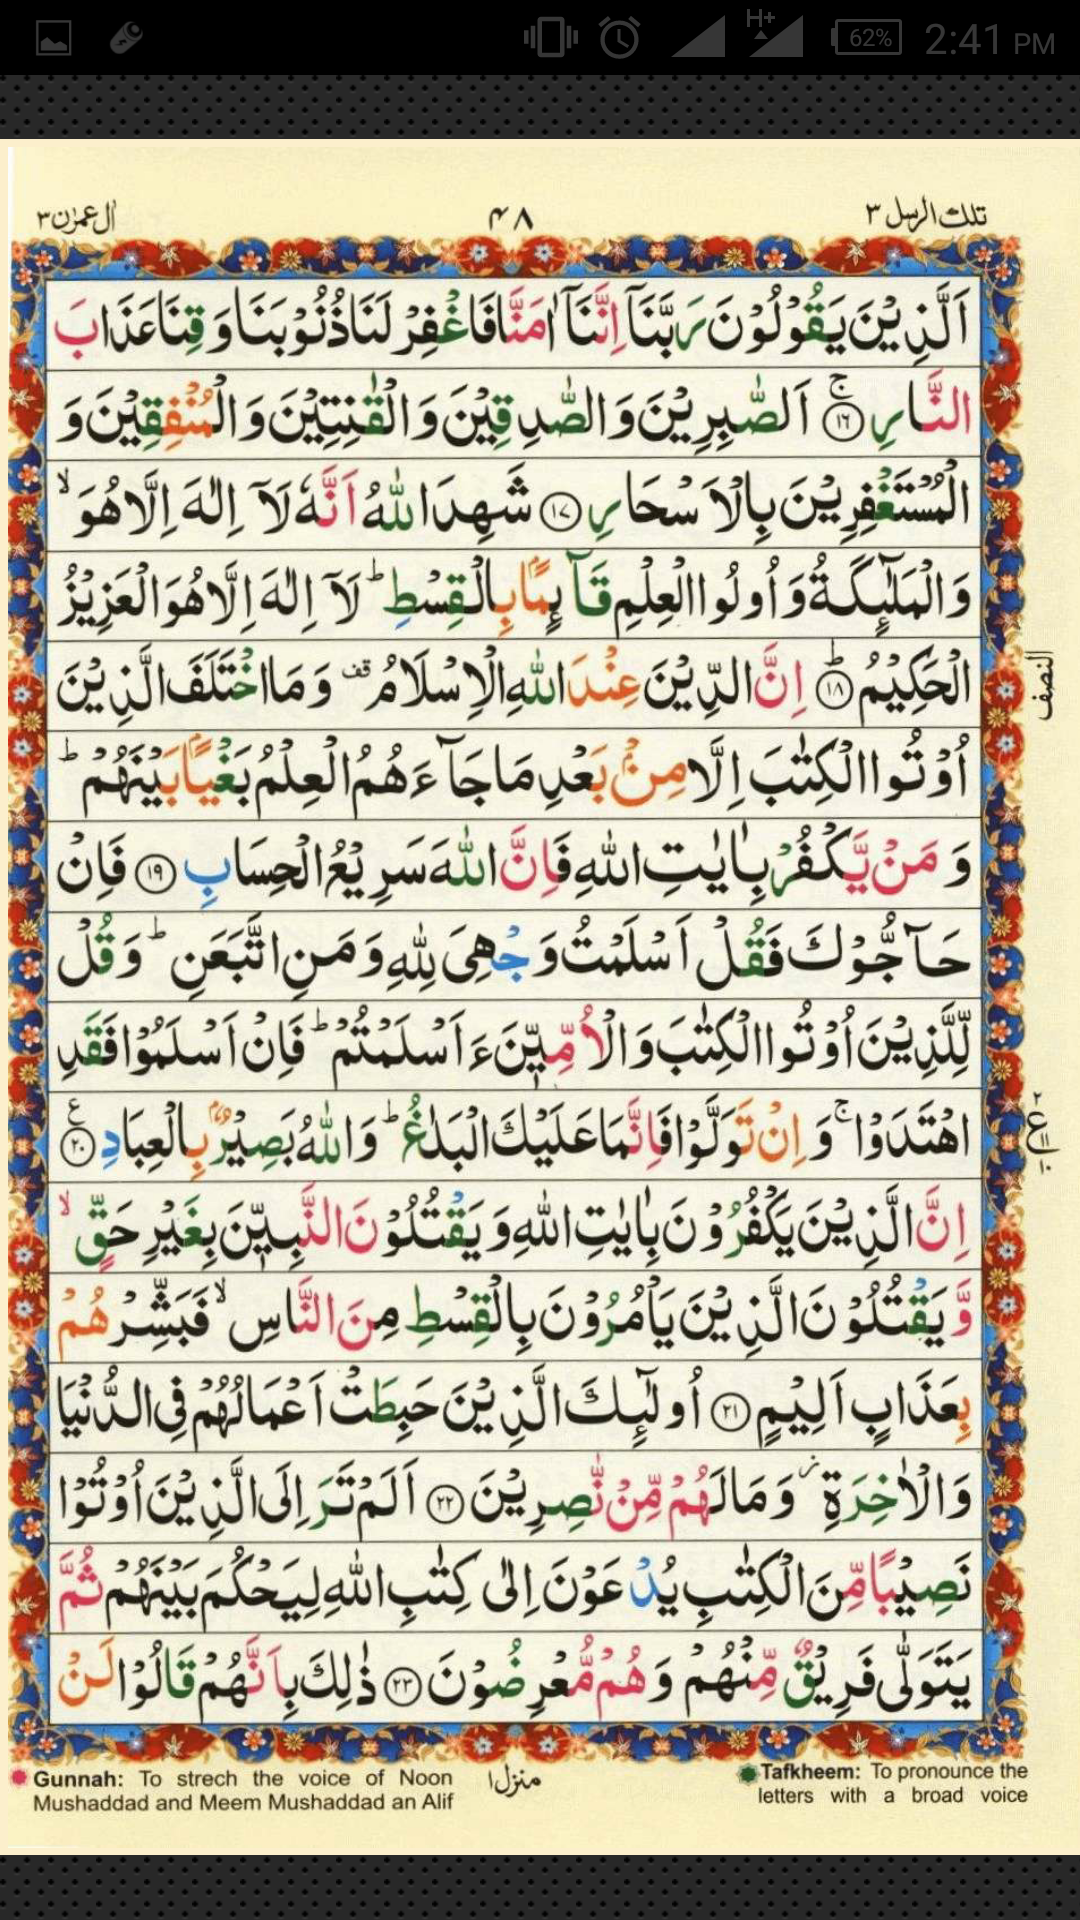 H+
62%
2:41 PM
تلك الرسل ٣
٤٨
اٰل عمرٰن ٣
اَلَّذِيْنَ يَقُوْلُوْنَ رَبَّنَاۤ اِنَّنَاۤ اٰمَنَّا فَاغْفِرْ لَنَا ذُنُوْبَنَا وَقِنَا عَذَابَ
النَّارِ ۚ‏﴿۱۶﴾ اَلصّٰبِرِيْنَ وَالصّٰدِقِيْنَ وَالْقٰنِتِيْنَ وَالْمُنْفِقِيْنَ وَ
الْمُسْتَغْفِرِيْنَ بِالْاَسْحَارِ ﴿۱۷﴾ شَهِدَ اللّٰهُ اَنَّهٗ لَاۤ اِلٰهَ اِلَّا هُوَ ۙ
وَالْمَلٰٓئِكَةُ وَاُولُوا الْعِلْمِ قَآئِمًاۢ بِالْقِسْطِ ؕ لَاۤ اِلٰهَ اِلَّا هُوَ الْعَزِيْزُ
الْحَكِيْمُ ؕ﴿۱۸﴾ اِنَّ الدِّيْنَ عِنْدَ اللّٰهِ الْاِسْلَامُ قف وَمَا اخْتَلَفَ الَّذِيْنَ
النصف
اُوْتُوا الْكِتٰبَ اِلَّا مِنْۢ بَعْدِ مَا جَآءَهُمُ الْعِلْمُ بَغْيًاۢ بَيْنَهُمْ ؕ
وَمَنْ يَّكْفُرْ بِاٰيٰتِ اللّٰهِ فَاِنَّ اللّٰهَ سَرِيْعُ الْحِسَابِ ﴿۱۹﴾ فَاِنْ
حَآجُّوْكَ فَقُلْ اَسْلَمْتُ وَجْهِيَ لِلّٰهِ وَمَنِ اتَّبَعَنِ ؕ وَقُلْ
لِّلَّذِيْنَ اُوْتُوا الْكِتٰبَ وَالْاُمِّيّٖنَ ءَاَسْلَمْتُمْ ؕ فَاِنْ اَسْلَمُوْا فَقَدِ
اهْتَدَوْا ۚ وَاِنْ تَوَلَّوْا فَاِنَّمَا عَلَيْكَ الْبَلٰغُ ؕ وَاللّٰهُ بَصِيْرٌۢ بِالْعِبَادِ ﴿۲۰﴾ ع
٢
ع
١١
١٠
اِنَّ الَّذِيْنَ يَكْفُرُوْنَ بِاٰيٰتِ اللّٰهِ وَيَقْتُلُوْنَ النَّبِيّٖنَ بِغَيْرِ حَقٍّ ۙ
وَّيَقْتُلُوْنَ الَّذِيْنَ يَاْمُرُوْنَ بِالْقِسْطِ مِنَ النَّاسِ ۙ فَبَشِّرْهُمْ
بِعَذَابٍ اَلِيْمٍ ﴿۲۱﴾ اُولٰٓئِكَ الَّذِيْنَ حَبِطَتْ اَعْمَالُهُمْ فِي الدُّنْيَا
وَالْاٰخِرَةِ ز وَمَا لَهُمْ مِّنْ نّٰصِرِيْنَ ﴿۲۲﴾ اَلَمْ تَرَ اِلَى الَّذِيْنَ اُوْتُوْا
نَصِيْبًا مِّنَ الْكِتٰبِ يُدْعَوْنَ اِلٰى كِتٰبِ اللّٰهِ لِيَحْكُمَ بَيْنَهُمْ ثُمَّ
يَتَوَلّٰى فَرِيْقٌ مِّنْهُمْ وَهُمْ مُّعْرِضُوْنَ ﴿۲۳﴾ ذٰلِكَ بِاَنَّهُمْ قَالُوْا لَنْ
Tafkheem: To pronounce the
letters with a broad voice
منزل ١
Gunnah: To strech the voice of Noon
Mushaddad and Meem Mushaddad an Alif